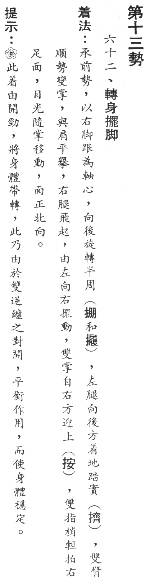 第十三勢
六十二、轉身擺脚
着法：承前勢，以右脚跟為軸心，向後旋轉半周（掤和擺），左腿向後方着地踏實（擠），雙臂
順勢變掌，與肩平舉，右腿飛起，由左向右擺動，雙掌自右方迎上（按），使指梢輕拍右
足面，目光隨掌移動，面正北向。
提示：㊟此着由開勁，將身體帶轉，此乃由於雙逆纏之對開，平衡作用，而使身體穩定。